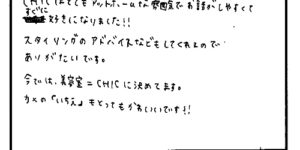 CHICはとてもアットホームな雰囲気でお話がしやすくて
すぐに
好きになりました!!
スタイリングのアドバイスなどもしてくれるので
ありがたいです。
今では、美容室=CHICに決めてます。
カメの「いちえ」もとってもかわいいです!!